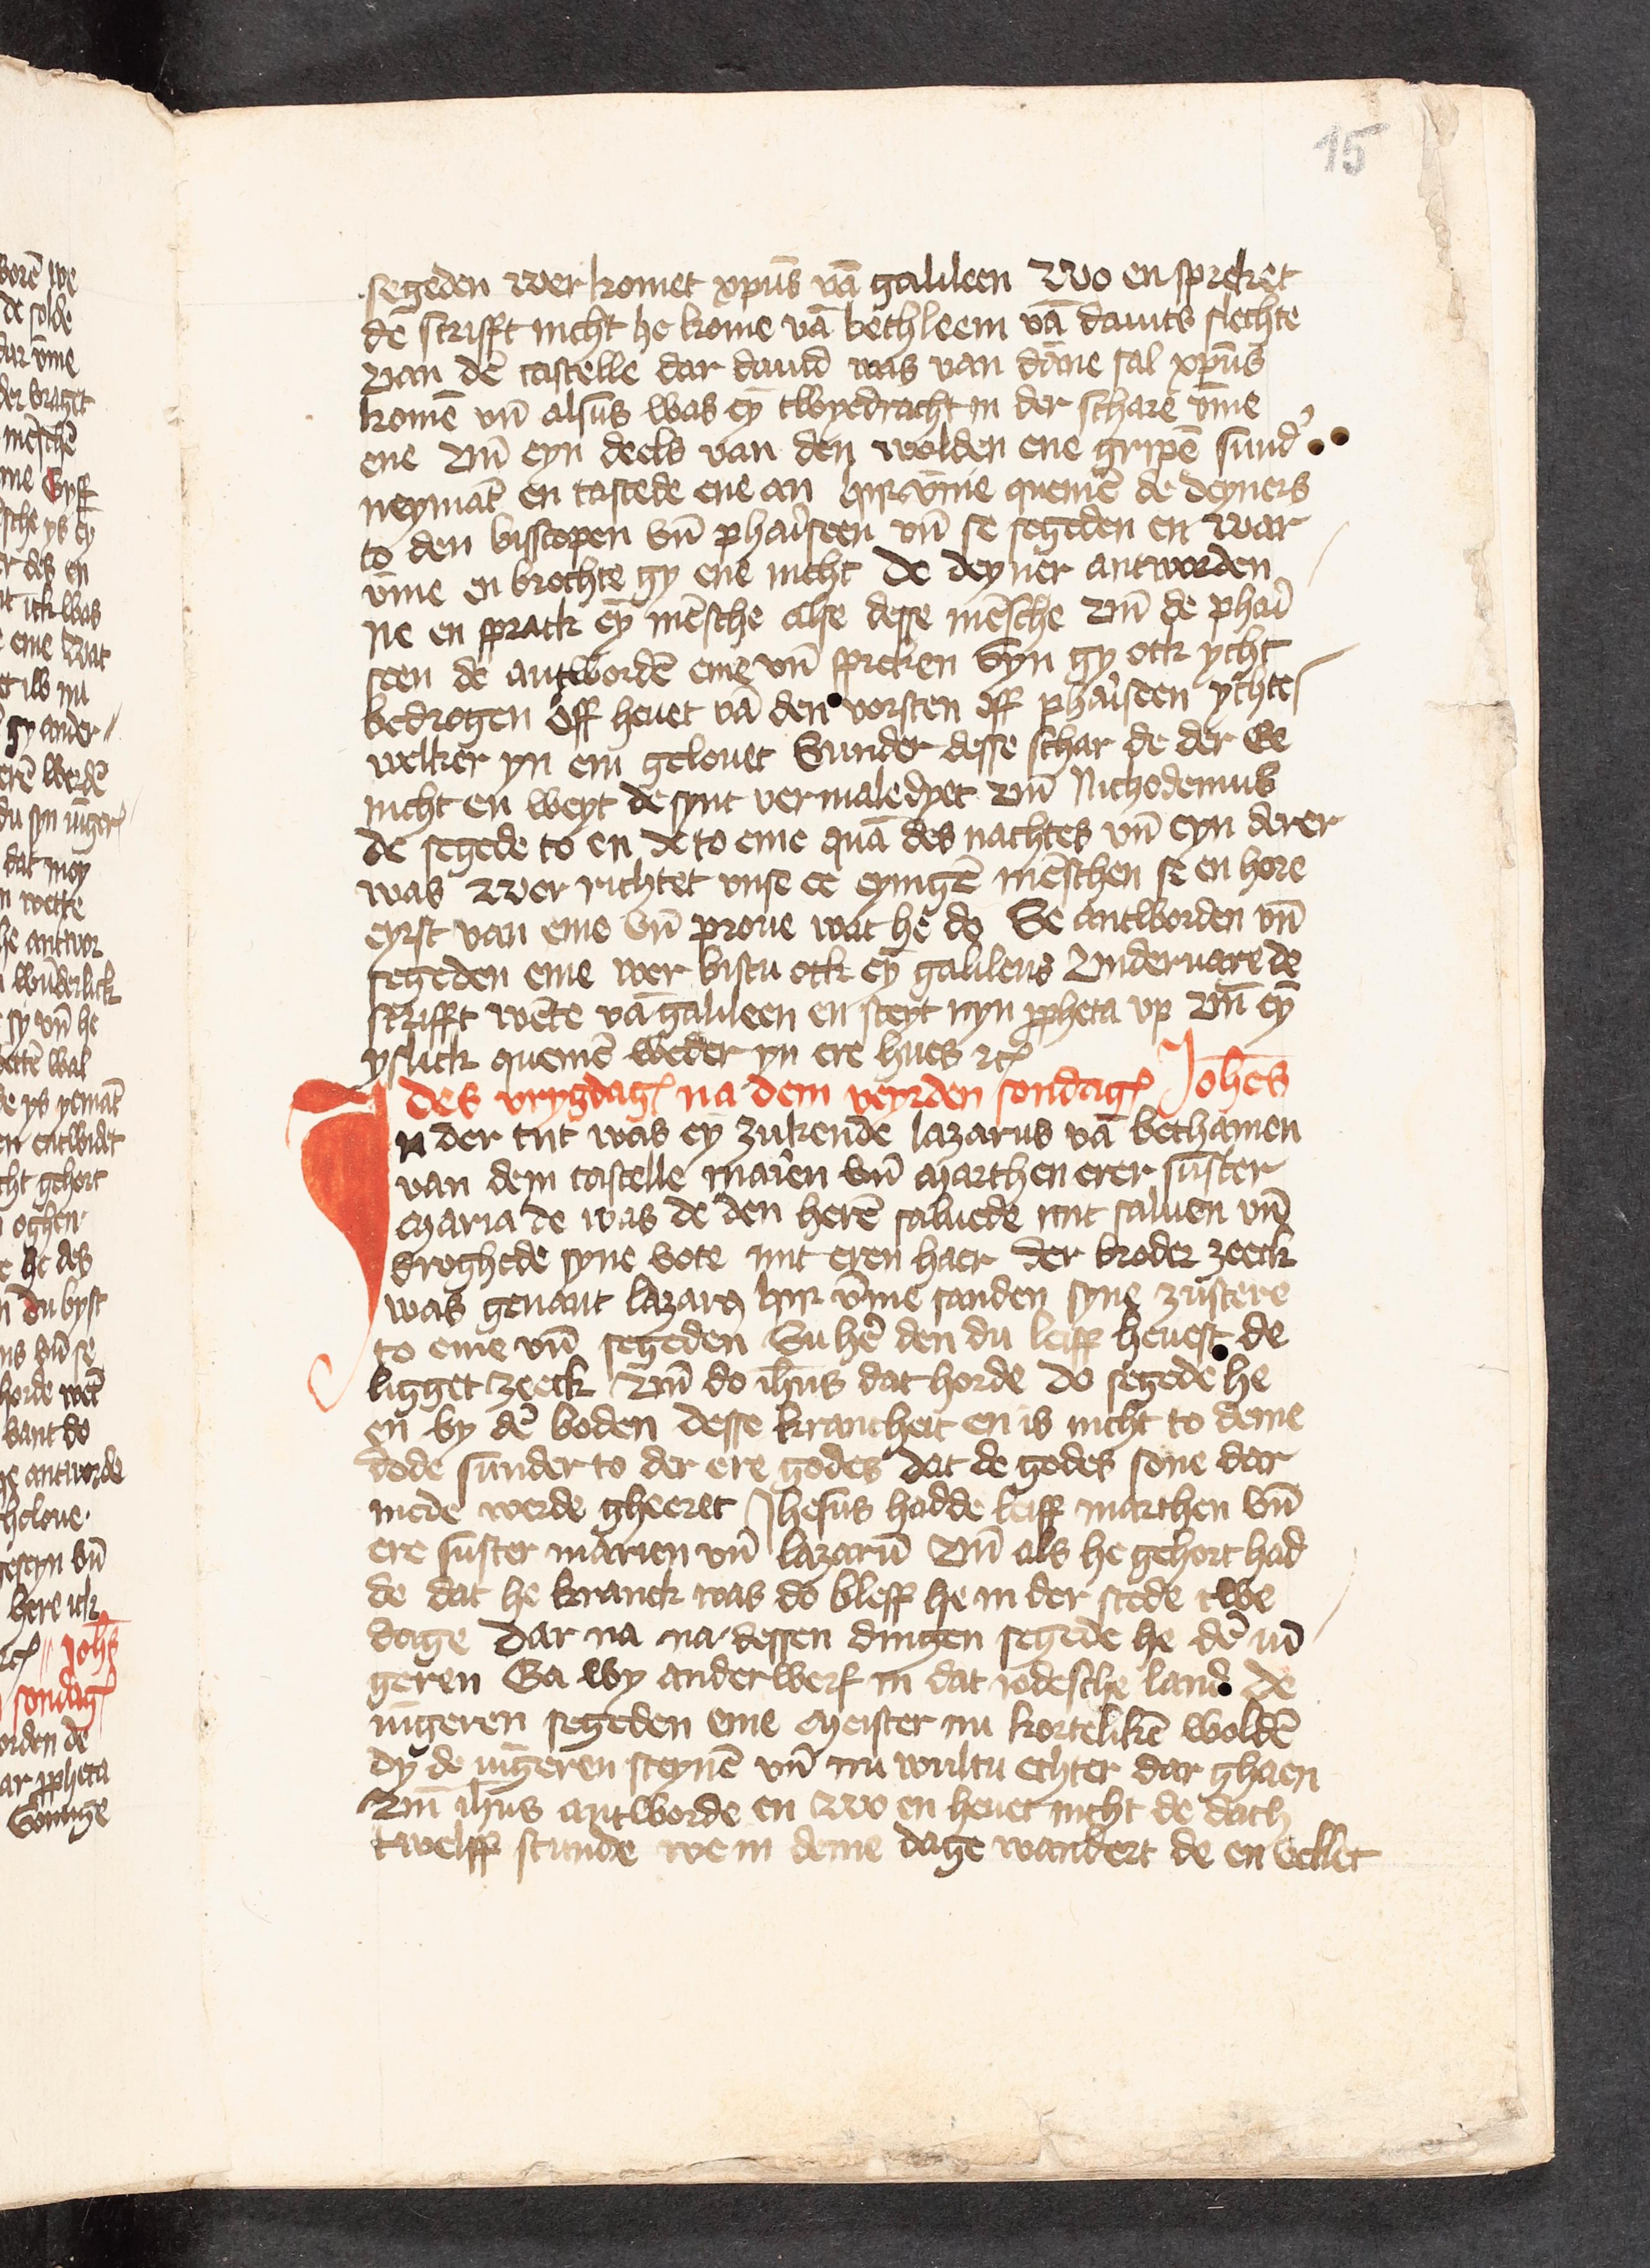 15
segeden wer komet xpūs vā galileen Wo en spreket
dē scrifft nicht he kome vā bethleem vā dauits slechte
van dē castelle dar dauid was van dāne sal xpūs
komē vn̄ alsus was eȳ twyedracht in der schare v̄me
ene Vn̄ eyn deels van den wolden ene gripē sund'
neymāt en tastede ene an hir v̄me quemē de deyners
to den bisscopen vn̄ phaīseen vn̄ se segeden en war
v̄me en brochte gy ene nicht De deyner antworden
ne en sprack eȳ mēsche alse desse mēsche Vn̄ de phaī
seen de antwordē eme vn̄ spreken Syn gy ock ycht
bedrogen Off heuet vā den vorsten off phaīseen ychte
welker yn em gelouet Sunder desse schar de der Ee
nicht en weyt de synt vermaledyet Vn̄ Nichodemus
de segede to en de to eme quā des nachtes vn̄ eyn derer
was Wer richtet vnse ee eyngē mēschen se en hore
eyrst van eme vn̄ proue wat he do Se antworden vn̄
segeden eme wer bistu ock eȳ galileus Vnderuare de
scrifft wēte vā galileen en steyt nyn ppheta vp Vn̄ eȳ
yslick quemē weder yn ere hues ꝛcꝭ
des vrygdagꝭ na dem veyrden sondagꝭ Johēs
In der tyt was eȳ zukende lazarus vā bethanien
van dem castelle marīen vn̄ marthen erer suster
Maria de was de den herē saluede mit saluen vn̄
droghede syne vote mit eren haer der broder zeeck
was genant lazarꝯ hir v̄me sanden syne zustere
to eme vn̄ segeden Su hē den du leiff heuest de
ligget zeeck Vn̄ do ihūs dat horde do segede he
en by dē boden desse kranckheit en is nicht to deme
dode sunder to der ere godes dat de godes sone dar
mede werde gheeret Jhesus hadde leiff marthen vn̄
ere suster marien vn̄ lazarū Vn̄ als he gehort had
de dat he kranck was do bleff he in der stede twe
dage Dar na na dessen dingen segede he dē iū
geren Ga wy anderwerf in dat iodesche land de
iūgeren segeden eme Meister nu kortelikē woldē
dy de iūgeren steynē vn̄ nu wultu echter dar ghaen
Vn̄ ihūs antworde en Wo en heuet nicht de dach
twelff stunde we in deme dage wandert de en vellet